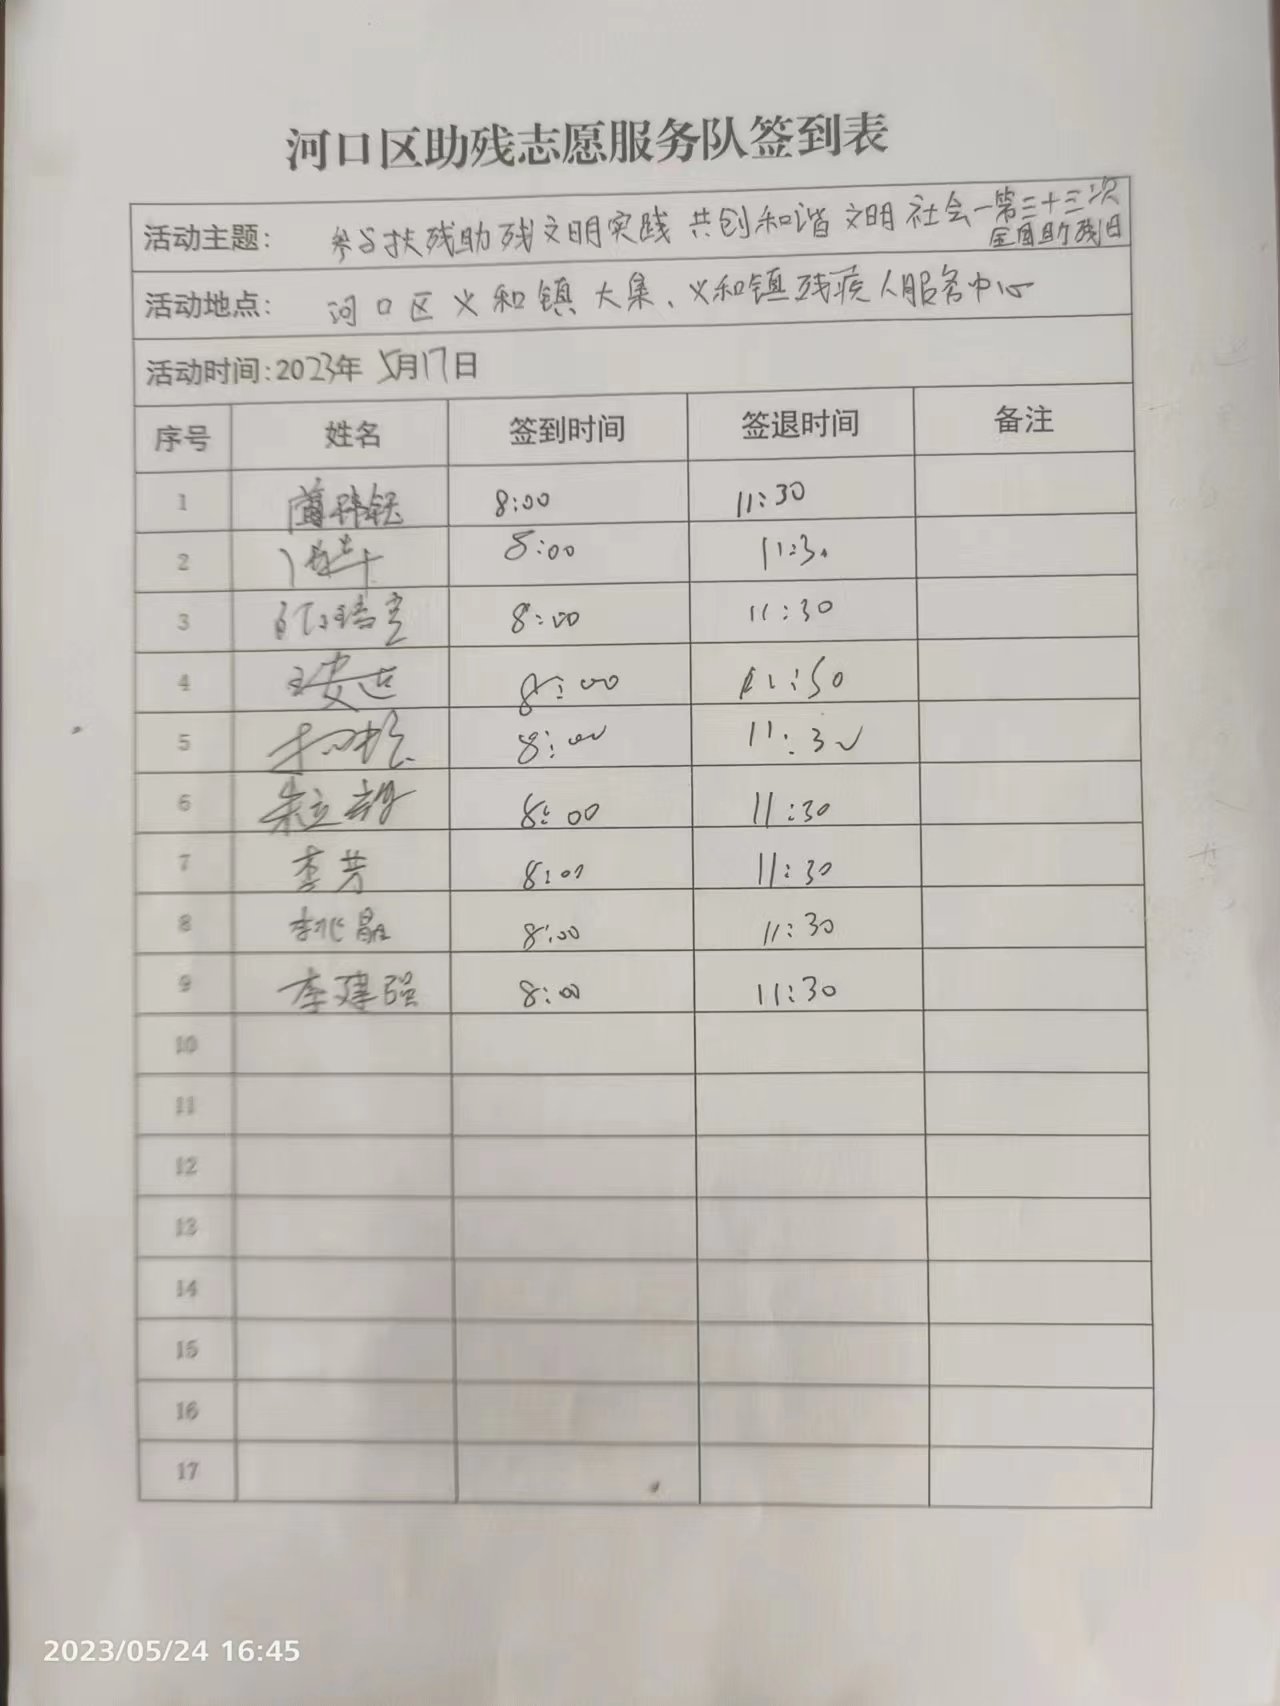 河口区助残志愿服务队签到表
活动主题: 参与扶残助残文明实践 共创和谐文明社会—第三十三次
全国助残日
活动地点: 河口区义和镇大集、义和镇残疾人服务中心
活动时间:2023年5月17日
序号 姓名 签到时间 签退时间 备注
1 8:00 11:30
2 8:00 11:30
3 8:00 11:30
4 8:00 11:50
5 8:00 11:30
6 8:00 11:30
7 李芳 8:00 11:30
8 8:00 11:30
9 李建强 8:00 11:30
10
11
12
13
14
15
16
17
2023/05/24 16:45